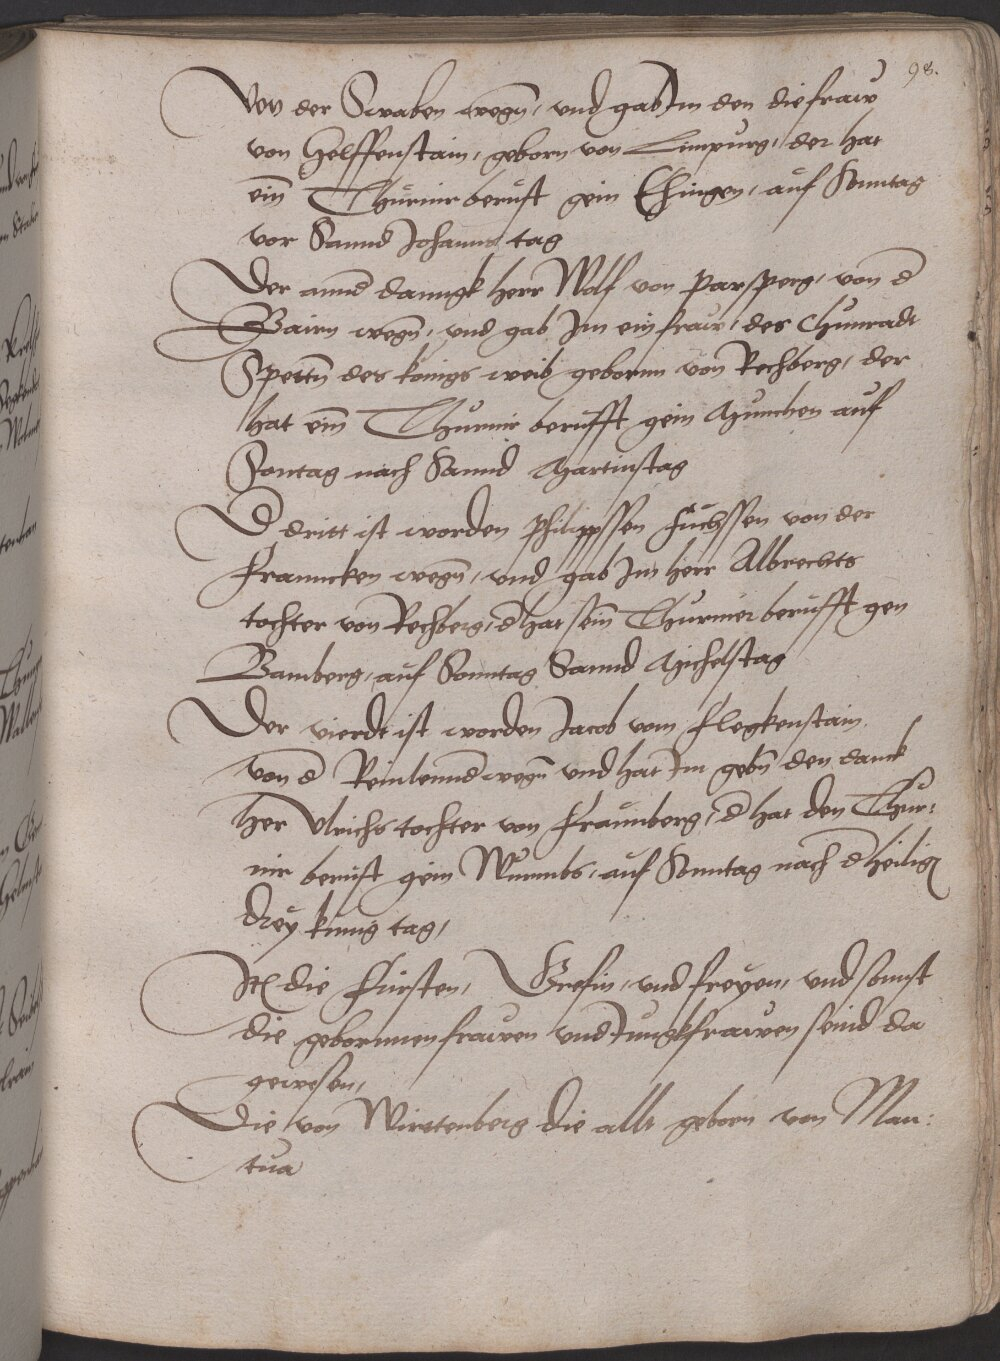 98.
Von der Swaben wegn̄, vnd gab Im den die fraw
von Helffenstain, geborn von Limpurg, der hat
ein̄ Thurnir beruft gein Ehingen, auf Sonntag
vor Sannd Johanns tag
Der annd danngk herr Wolf von Parsperg, von d
Bairn wegn̄, vnd gab Im ein fraw, der Chunradt
Spettn̄ des konigs weib gebornn von Rechberg, der
hat ein̄ Thurnir berufft gein Munchen auf
Sontag nach Sannd Martinstag
D dritt ist worden Philippssen Fuchssen von der
Franncken wegn̄, vnd gab Im herr Albrechts
tochter von Rechberg, d hat sein̄ Thurnier berufft gen
Bamberg, auf Sonntag Sannd Michelstag
Der vierdt ist worden Jacob vom Flegkenstain
von d Reinlennd wegn̄ vnd hat Im gebn̄ den danck
her Vlrichs tochter von Fraunberg, d hat den Thur:
nir beruft gein Wurmbs, auf Sonntag nach d heilig
drey kunig tag,
It die Fürsten, Grefin, vnd freyen, vnd sonnst
die gebornnen frawen vnd Jungkfrawen seind da
gewesen,
Die von Wirttenberg die allt geborn von Man:
tua